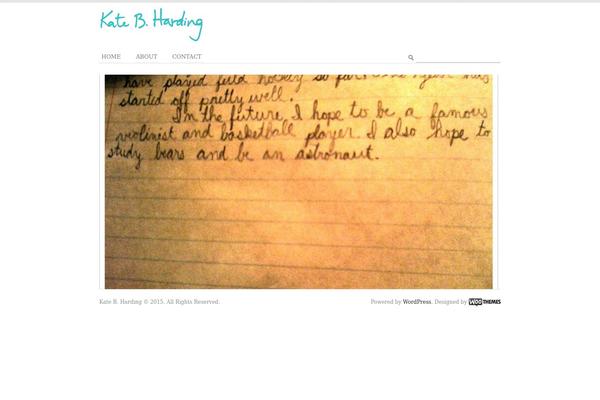 Kate B. Harding
HOME ABOUT CONTACT
have played field hockey so far
started off pretty well.
In the future I hope to be a famous
violinist and basketball player I also hope to
study bears and be an astronaut.
Kate B. Harding © 2015. All Rights Reserved.
Powered by WordPress. Designed by WOO THEMES